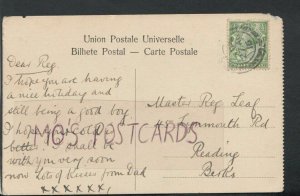 Union Postale Universelle
Bilhete Postal — Carte Postale
Dear Reg.
I hope you are having
a nice holiday and
still being a good boy
I hope cold is
better. I shall be
with you very soon
now lots of kisses from Dad
x x x x x x /
Master Reg Leaf
Tynmouth Rd
Reading
Berks
MG'S POSTCARDS